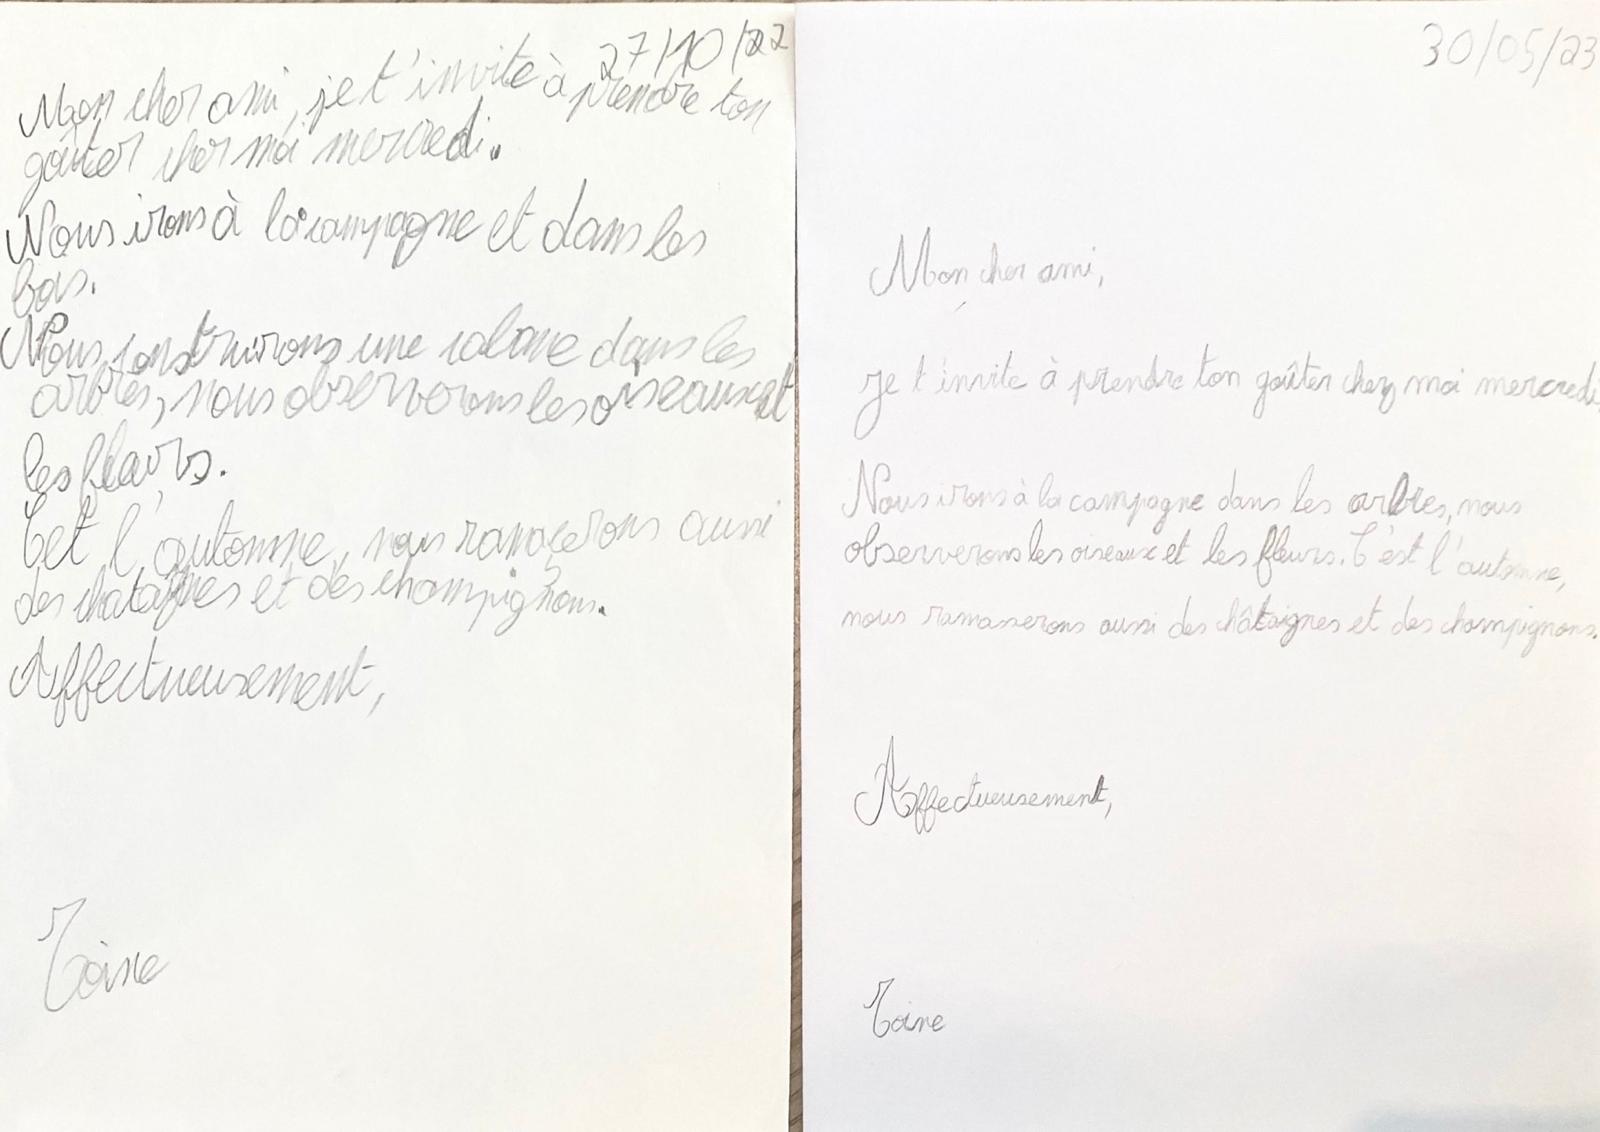 27/10/22
Mon cher ami, je t'invite à prendre ton
goûter cher moi mercredi.
Nous irons à la campagne et dans les
bois.
Nous construirons une cabane dans les
arbres, nous observerons les oiseaux et
les fleurs.
Cet l'automne, nous ramaçerons aussi
des chataignes et des champignons.
Affectueusement,
Toine
30/05/23
Mon cher ami,
je t'invite à prendre ton goûter chez moi mercredi.
Nous irons à la campagne dans les arbres, nous
observerons les oiseaux et les fleurs. C'est l'automne,
nous ramasserons aussi des châtaignes et des champignons.
Affectueusement,
Toine